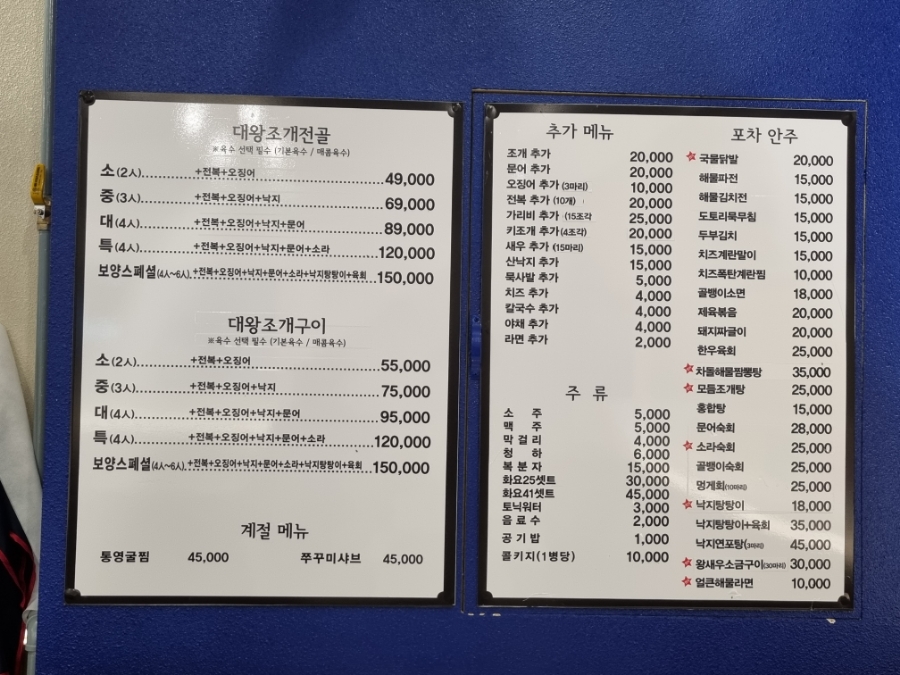 대왕조개전골
※육수 선택 필수 (기본육수 / 매콤육수)
소(2人)..........+전복+오징어..........49,000
중(3人)..........+전복+오징어+낙지..........69,000
대(4人)..........+전복+오징어+낙지+문어..........89,000
특(4人)..........+전복+오징어+낙지+문어+소라..........120,000
보양스페셜(4人~6人).+전복+오징어+낙지+문어+소라+낙지탕탕이+육회 150,000
대왕조개구이
※육수 선택 필수 (기본육수 / 매콤육수)
소(2人)..........+전복+오징어..........55,000
중(3人)..........+전복+오징어+낙지..........75,000
대(4人)..........+전복+오징어+낙지+문어..........95,000
특(4人)..........+전복+오징어+낙지+문어+소라..........120,000
보양스페셜(4人~6人).+전복+오징어+낙지+문어+소라+낙지탕탕이+육회..150,000
계절 메뉴
통영굴찜 45,000 쭈꾸미샤브 45,000
추가 메뉴
조개 추가 20,000
문어 추가 20,000
오징어 추가 (3마리) 10,000
전복 추가 (10개) 20,000
가리비 추가 (15조각 25,000
키조개 추가 (4조각) 20,000
새우 추가 (15마리) 15,000
산낙지 추가 15,000
묵사발 추가 5,000
치즈 추가 4,000
칼국수 추가 4,000
야채 추가 4,000
라면 추가 2,000
주 류
소 주 5,000
맥 주 5,000
막 걸 리 4,000
청 하 6,000
복 분 자 15,000
화요25셋트 30,000
화요41셋트 45,000
토닉워터 3,000
음 료 수 2,000
공 기 밥 1,000
콜키지(1병당) 10,000
포차 안주
국물닭발 20,000
해물파전 15,000
해물김치전 15,000
도토리묵무침 15,000
두부김치 15,000
치즈계란말이 15,000
치즈폭탄계란찜 10,000
골뱅이소면 18,000
제육볶음 20,000
돼지짜글이 20,000
한우육회 25,000
차돌해물짬뽕탕 35,000
모듬조개탕 25,000
홍합탕 15,000
문어숙회 28,000
소라숙회 25,000
골뱅이숙회 25,000
멍게회(10마리) 25,000
낙지탕탕이 18,000
낙지탕탕이+육회 35,000
낙지연포탕(3마리) 45,000
왕새우소금구이(30마리) 30,000
얼큰해물라면 10,000